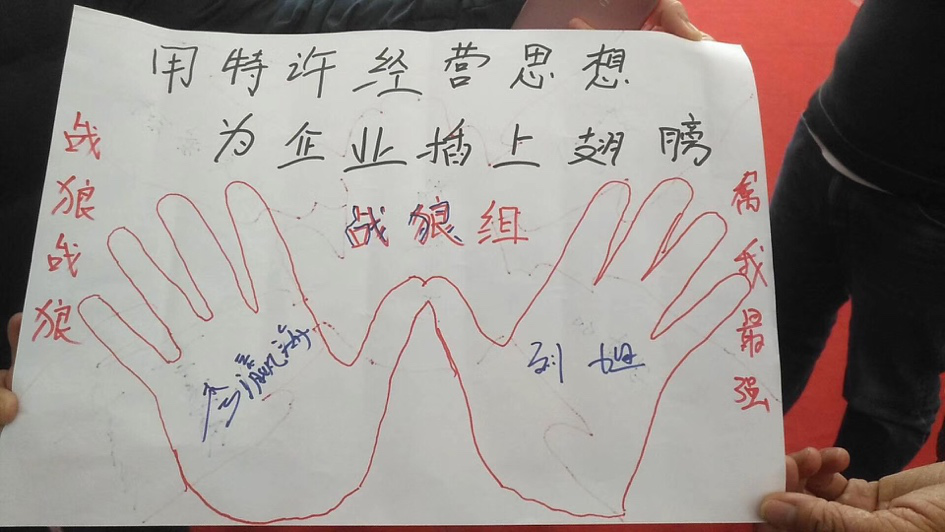 用特许经营思想
为企业插上翅膀
战狼战狼
战狼组
我最强